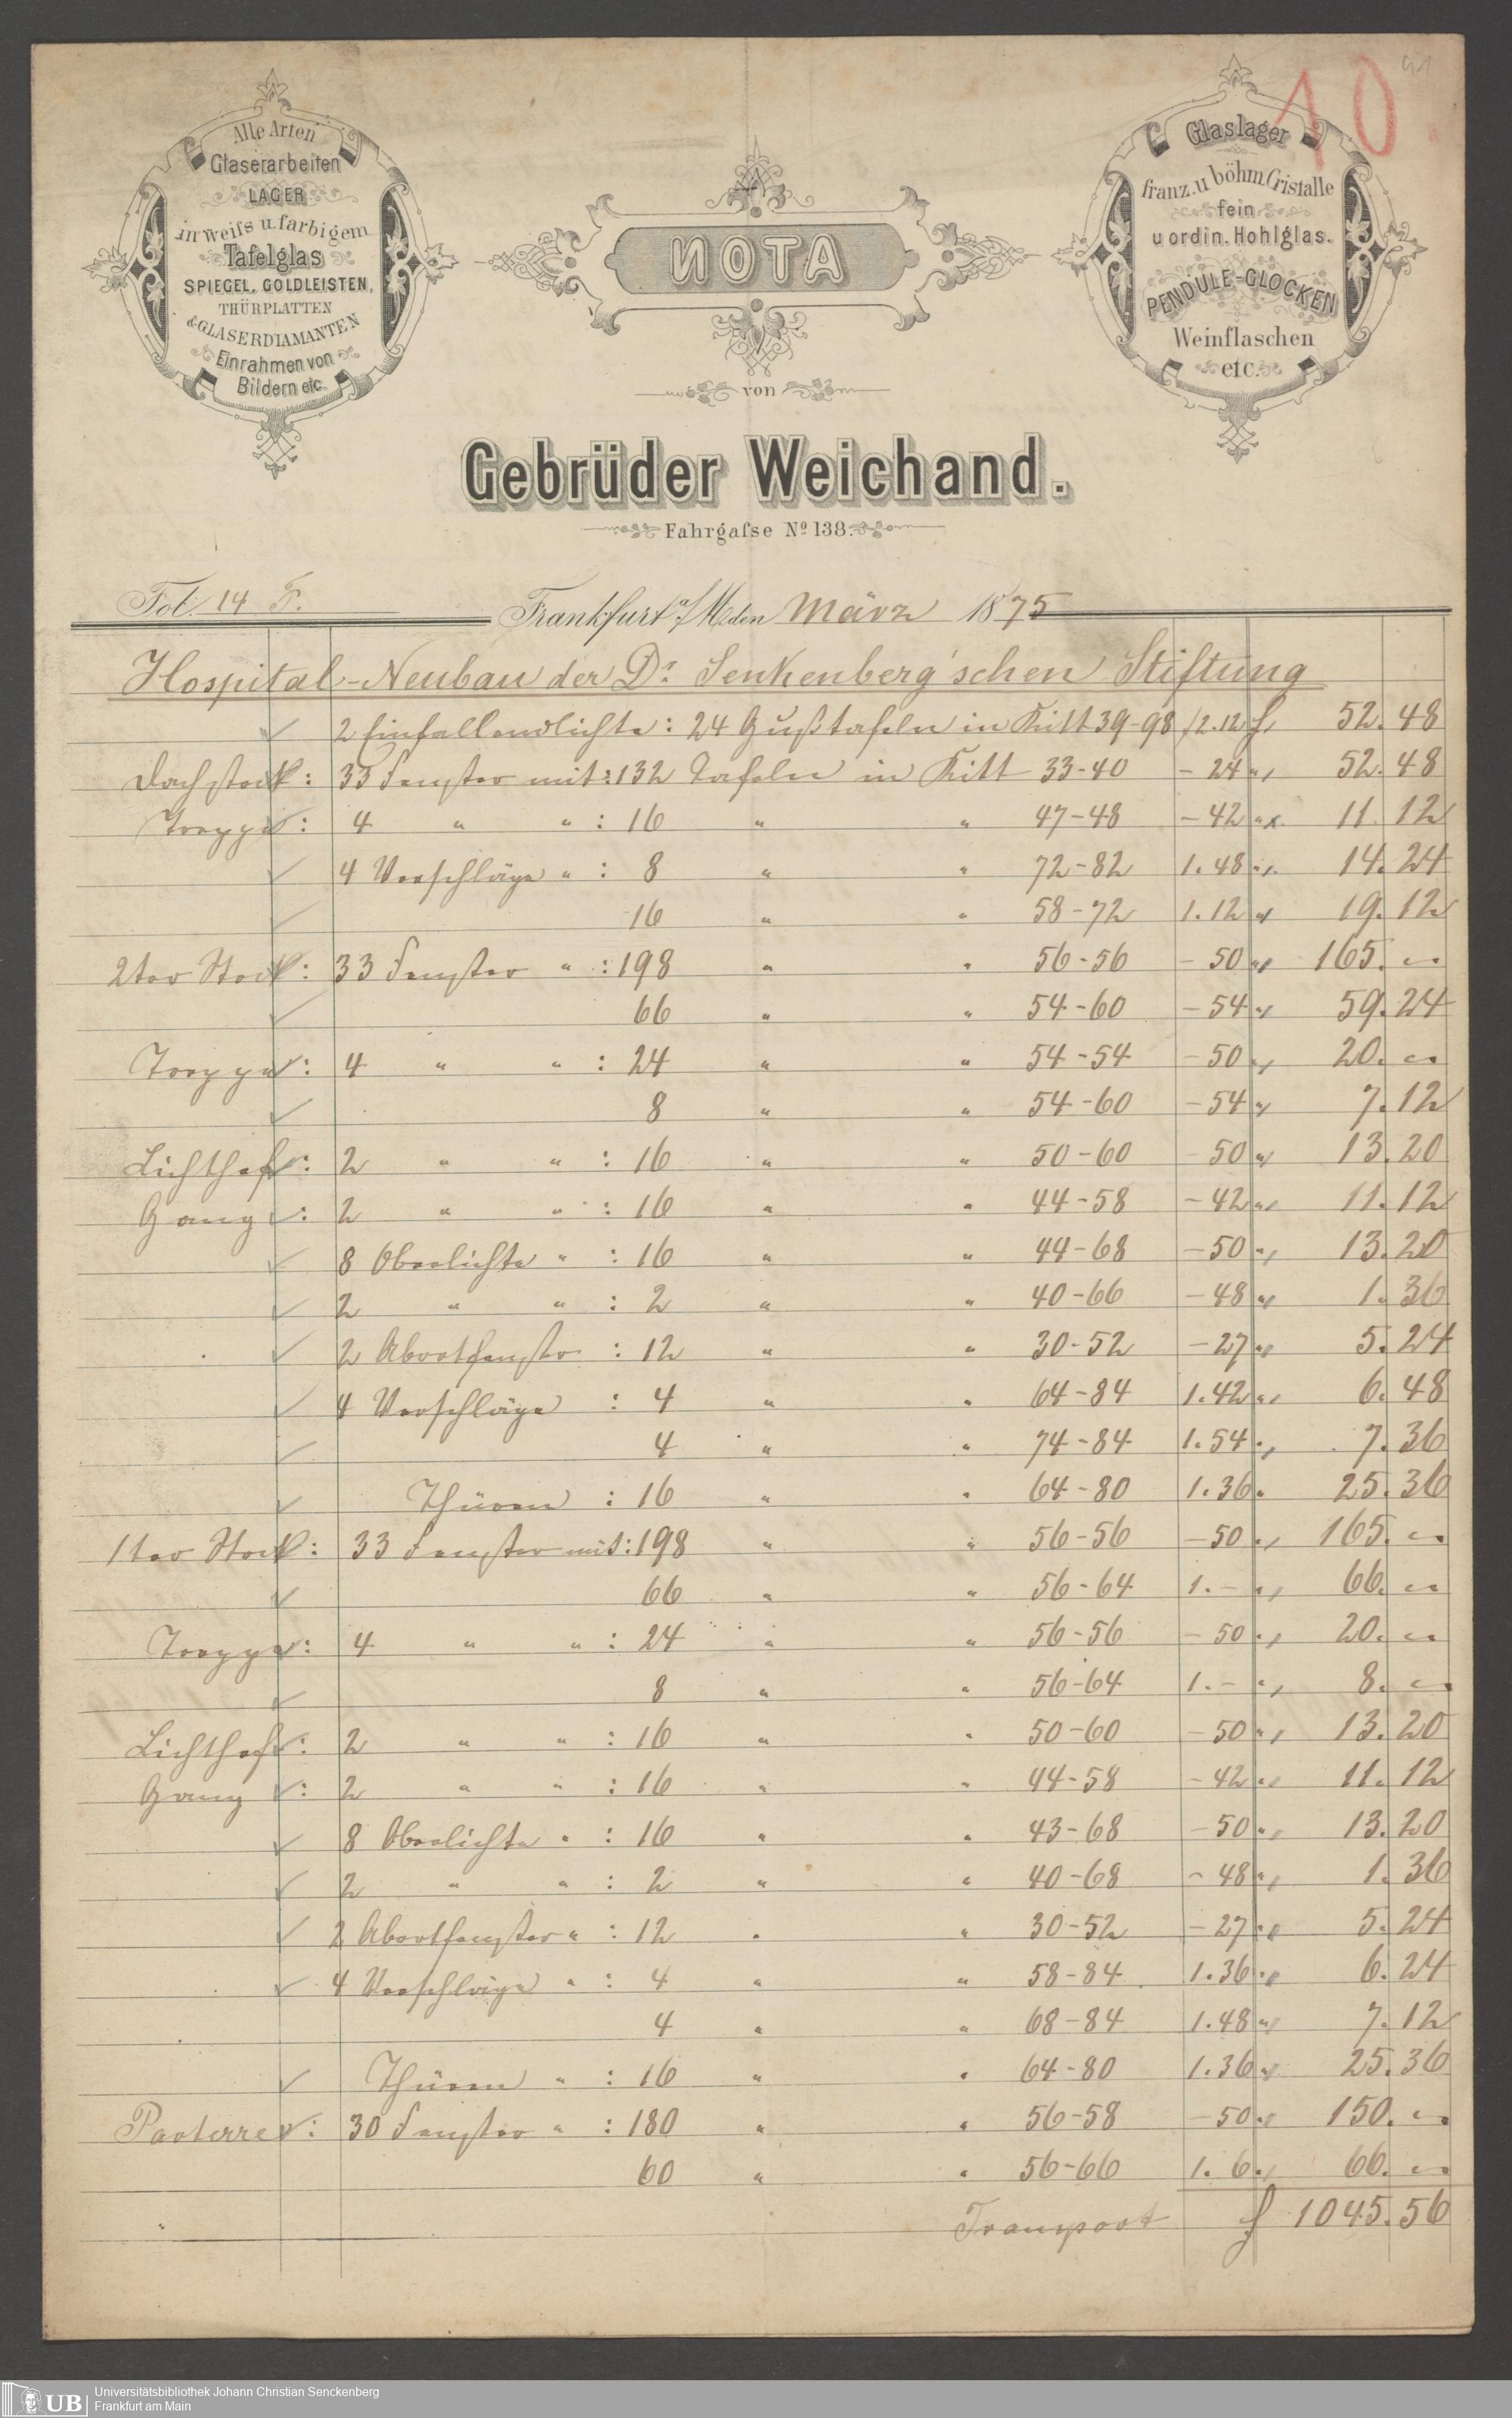 10
Alle Arten
Glaserarbeiten
LAGER
in weiſs u. farbigem
Tafelglas
SPIEGEL, GOLDLEISTEN,
THÜRPLATTEN
& GLASERDIAMANTEN
Einrahmen von
Bildern etc.
NOTA
von
Glaslager
franz. u böhm. Cristalle
fein
u ordin. Hohlglas.
PENDULE-GLOCKEN
Weinflaschen
etc.
Gebrüder Weichand.
Fahrgaſse No 138.
Fol. 14 F.
Frankfurt a/M den März 1875
Hospital-Neubau der Dr. Senkenberg'schen Stiftung
2 Einfallendlichte: 24 Gußtafeln in Kitt 39-98 /2.12 f, 52. 48
Dachstock: 33 Fenster mit: 132 Tafeln in Kitt 33-40 - 24 " 52. 48
Treppe: 4 " " : 16 " " 47-48 - 42 " 11. 12
4 Vorschläge " : 8 " " 72-82 1.48 " 14. 24
16 " " 58-72 1.12 " 19. 12
2ter Stock: 33 Fenster " : 198 " " 56-56 - 50 " 165. "
66 " " 54-60 - 54 " 59. 24
Treppe: 4 " " : 24 " " 54-54 - 50 " 20. "
8 " " 54-60 - 54 " 7. 12
Lichthof: 2 " " : 16 " " 50-60 50 " 13. 20
Gang: 2 " " : 16 " " 44-58 - 42 " 11. 12
8 Oberlichte " : 16 " " 44-68 - 50 " 13. 20
2 " " : 2 " " 40-66 - 48 " 1. 36
2 Abortfenster : 12 " " 30-52 - 27 " 5. 24
4 Vorschläge : 4 " " 64-84 1.42 " 6. 48
4 " " 74-84 1.54 " 7. 36
Thüren : 16 " " 64-80 1.36 " 25. 36
1ter Stock: 33 Fenster mit: 198 " " 56-56 - 50 " 165. "
66 " " 56-64 1. - " 66. "
Treppe: 4 " " : 24 " " 56-56 - 50 " 20. "
8 " " 56-64 1. - " 8. "
Lichthof: 2 " " : 16 " " 50-60 - 50 " 13. 20
Gang : 2 " " : 16 " " 44-58 - 42 " 11. 12
8 Oberlichte " : 16 " " 43-68 - 50 " 13. 20
2 " " : 2 " " 40-68 - 48 " 1. 36
2 Abortfenster " : 12 " " 30-52 - 27 " 5. 24
4 Vorschläge " : 4 " " 58-84 1.36 " 6. 24
4 " " 68-84 1.48 " 7. 12
Thüren " : 16 " " 64-80 1.36 " 25. 36
Parterre: 30 Fenster " : 180 " " 56-58 - 50 " 150. "
60 " " 56-66 1. 6 " 66. "
Transport f 1045. 56
UB
Universitätsbibliothek Johann Christian Senckenberg
Frankfurt am Main